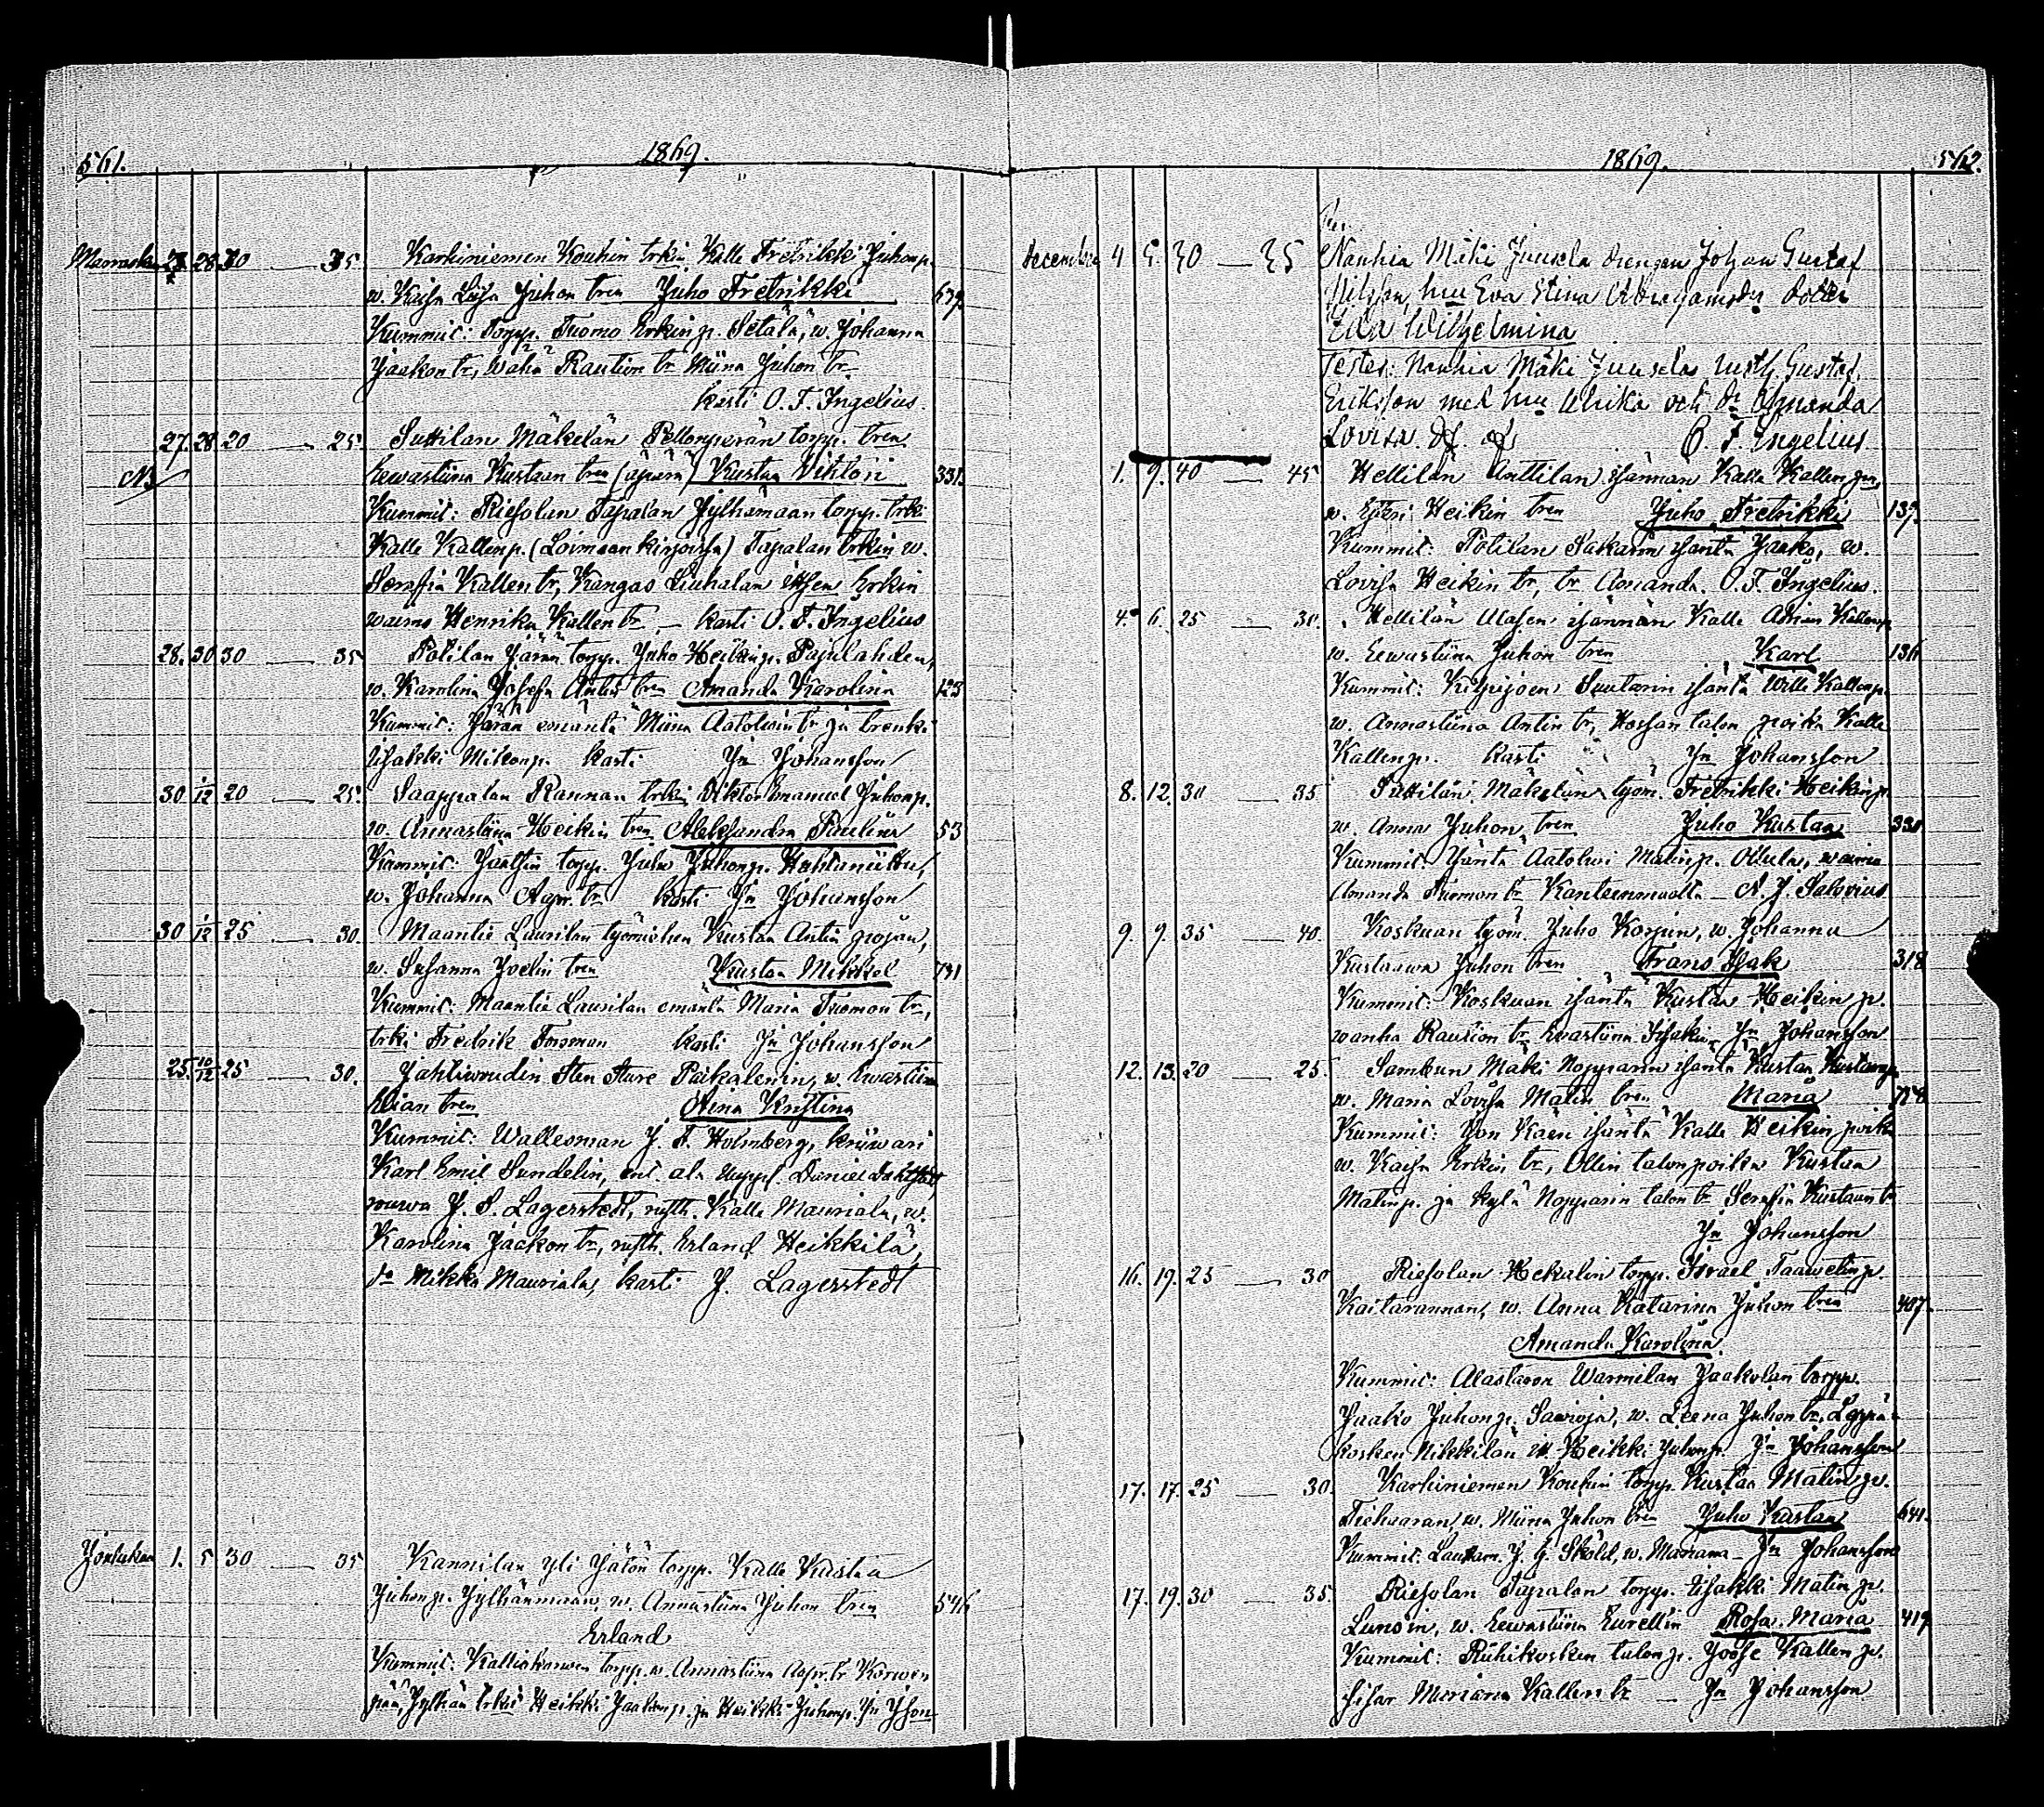 561. 1869.
Marrask. 28 28 30 — 35. Karhiniemen Kouhin trki Kalle Fretrikki Juhonp.
w. Kaisa Liisa Juhon tren Juho Fretrikki 639
Kummit: Torpp. Tuomo Erkinp. Setälä, w. Johanna
Jaakon tr, Waha Raution tr Miina Juhon tr.
kasti O. F. Ingelius.
27. 28 20 — 25 Suttilan Mäkelän Pellonperän torpp. tren
Eewastiina Kustaan tren (äpärä) Kustaa Wihtori 331.
Kummit: Riesolan Tapalan Jylhämaan torpp. trki
Kalle Kallenp. (Loimaan kirjoissa) Tapalan trkin w.
Serafia Kallen tr, Kangas Liuhalan itsen Erkin
waimo Henrika Kallen tr — kasti O. F. Ingelius
28. 30 30 — 35 Potilan Järän torpp. Juho Heikinp. Pajulahden,
w. Karolina Josefa Antin tren Amanda Karolina 123
Kummit: Järän emäntä Miina Aatolwin tr ja trenki
Iisakki Mikonp. kasti Jn Johansson
30. 1/12 20 — 25. Saappalan Rannan trki Viktor Emanuel Juhonp.
w. Annastiina Heikin tren Aleksandra Pauliina 53
Kummit: Jaltsin torpp. Juho Juhonp. Huhtaniittu,
w. Johanna Agr. tr kasti Jn Johansson
30 1/12 25 — 30. Maantie Laurilan työmiehen Kustaa Antin pojan,
w. Susanna Joelin tren Kustaa Mikkel 731
Kummit: Maantie Laurilan emäntä Maria Tuomon tr,
trki Fredrik Forsman kasti Jn Johansson
25. 10/12 25 — 30. Jahtiwoudin Sten Sture Paikalenin, w. Ewastiina
Elian tren Aina Kristina
Kummit: Wallesman J. F. Holmberg, kriiwari
Karl Emil Sundelin, ent. ala uppf. Daniel Dahlstedt,
rouwa J. S. Lagerstedt, rusth. Kalle Mauriala, w.
Karolina Jaakon tr, rusth. Erland Heikkilä,
do Mikko Mauriala, kasti J. Lagerstedt
Joulukuu 1. 5 30 — 35 Kannilan yli Jälön torpp. Kalle Kustaa
Juhonp. Jylhänmaan, w. Annastiina Juhon tren 546
Erland
Kummit: Kalliokorwen torpp. w. Annastiina Agr. tr Korwen
pää, Jylhän trkit Heikki Jaakonp. ja Heikki Juhonp. Jn Json
1869. 562.
December 4 5. 30 — 35 Nanhia Mäki Juusela drengen Johan Gustaf
Nilsson, hu Eva Stina Abrahamsdr dotter
Eda Wilhelmina
Testes: Nanhia Mäki Juuselas rusth. Gustaf
Eriksson med hu Ulrika och dr Amanda
Lovisa. O. F. Ingelius
1. 9. 40 — 45 Hellilän Anttilan isännän Kalle Kallenpn,
w. Esteri Heikin tren Juho Fretrikki 137.
Kummit: Potilan Sakarin isäntä Jaako, w.
Lovisa Heikin tr, tr Amanda. O. F. Ingelius.
4. 6. 25 — 30. Hellilän Alasen isännän Kalle Adrian Kallenp.
w. Eewastiina Juhon tren Karl 136
Kummit: Kilpijoen Suutarin isäntä Wille Kallenp.
w. Annastiina Antin tr, Hossan talon poika Kalle
Kallenp. kasti Jn Johansson
8. 12. 30 — 35 Suttilan Mäkelän työm. Fretrikki Heikinp.
w. Anna Juhon tren Juho Kustaa 330
Kummit: Isäntä Aatolwi Matinp. Ollula, waimo
Amanda Tuomon tr Kanteenmaalta — A. J. Salovius
9. 9. 35 — 40. Koskuan työm. Juho Korpin, w. Johanna
Kustaawa Juhon tren Frans Isak 318
Kummit: Koskuan isäntä Kustaa Heikin p.
wanha Raution tr Ewastiina Isakin Jn Johansson
12. 13. 20 — 25. Sambun Mäki Nopparin isäntä Kustaa Kustaanp.
w. Maria Lovisa Matin tren Maria 758
Kummit: Jon Kaen isäntä Kalle Heikin poika
w. Kaisa Erkin tr, Ollin talonpoika Kustaa
Matinp. ja kylä Nopparin talon tr Serafia Kustaan tr
Jn Johansson
16. 19. 25 — 30 Riesolan Hekalin torpp. Israel Taawetinp.
Kaitarannan, w. Anna Katarina Juhon tren 407.
Amanda Karolina
Kummit: Alastaron Warmilan Jaakolan torpp.
Jaako Juhonp. Sawioja, w. Leena Juhon tr, Leppä-
kosken Nikkilän Heikki Juhonp. Jn Johansson
17. 17. 25 — 30. Karhiniemen Kouhin torpp. Kustaa Matinp.
Tiehaaran, w. Miina Juhon tren Juho Kustaa 641.
Kummit: Lautam. J. G. Sköld, w. Mariana — Jn Johansson
17. 19. 30 — 35. Riesolan Tapalan torpp. Iisakki Matin p.
Lunsin, w. Eewastiina Eurellin Rosa Maria 419
Kummit: Riihikosken talonp. Joose Kallen p.
sisar Mariana Kallen tr — Jn Johansson